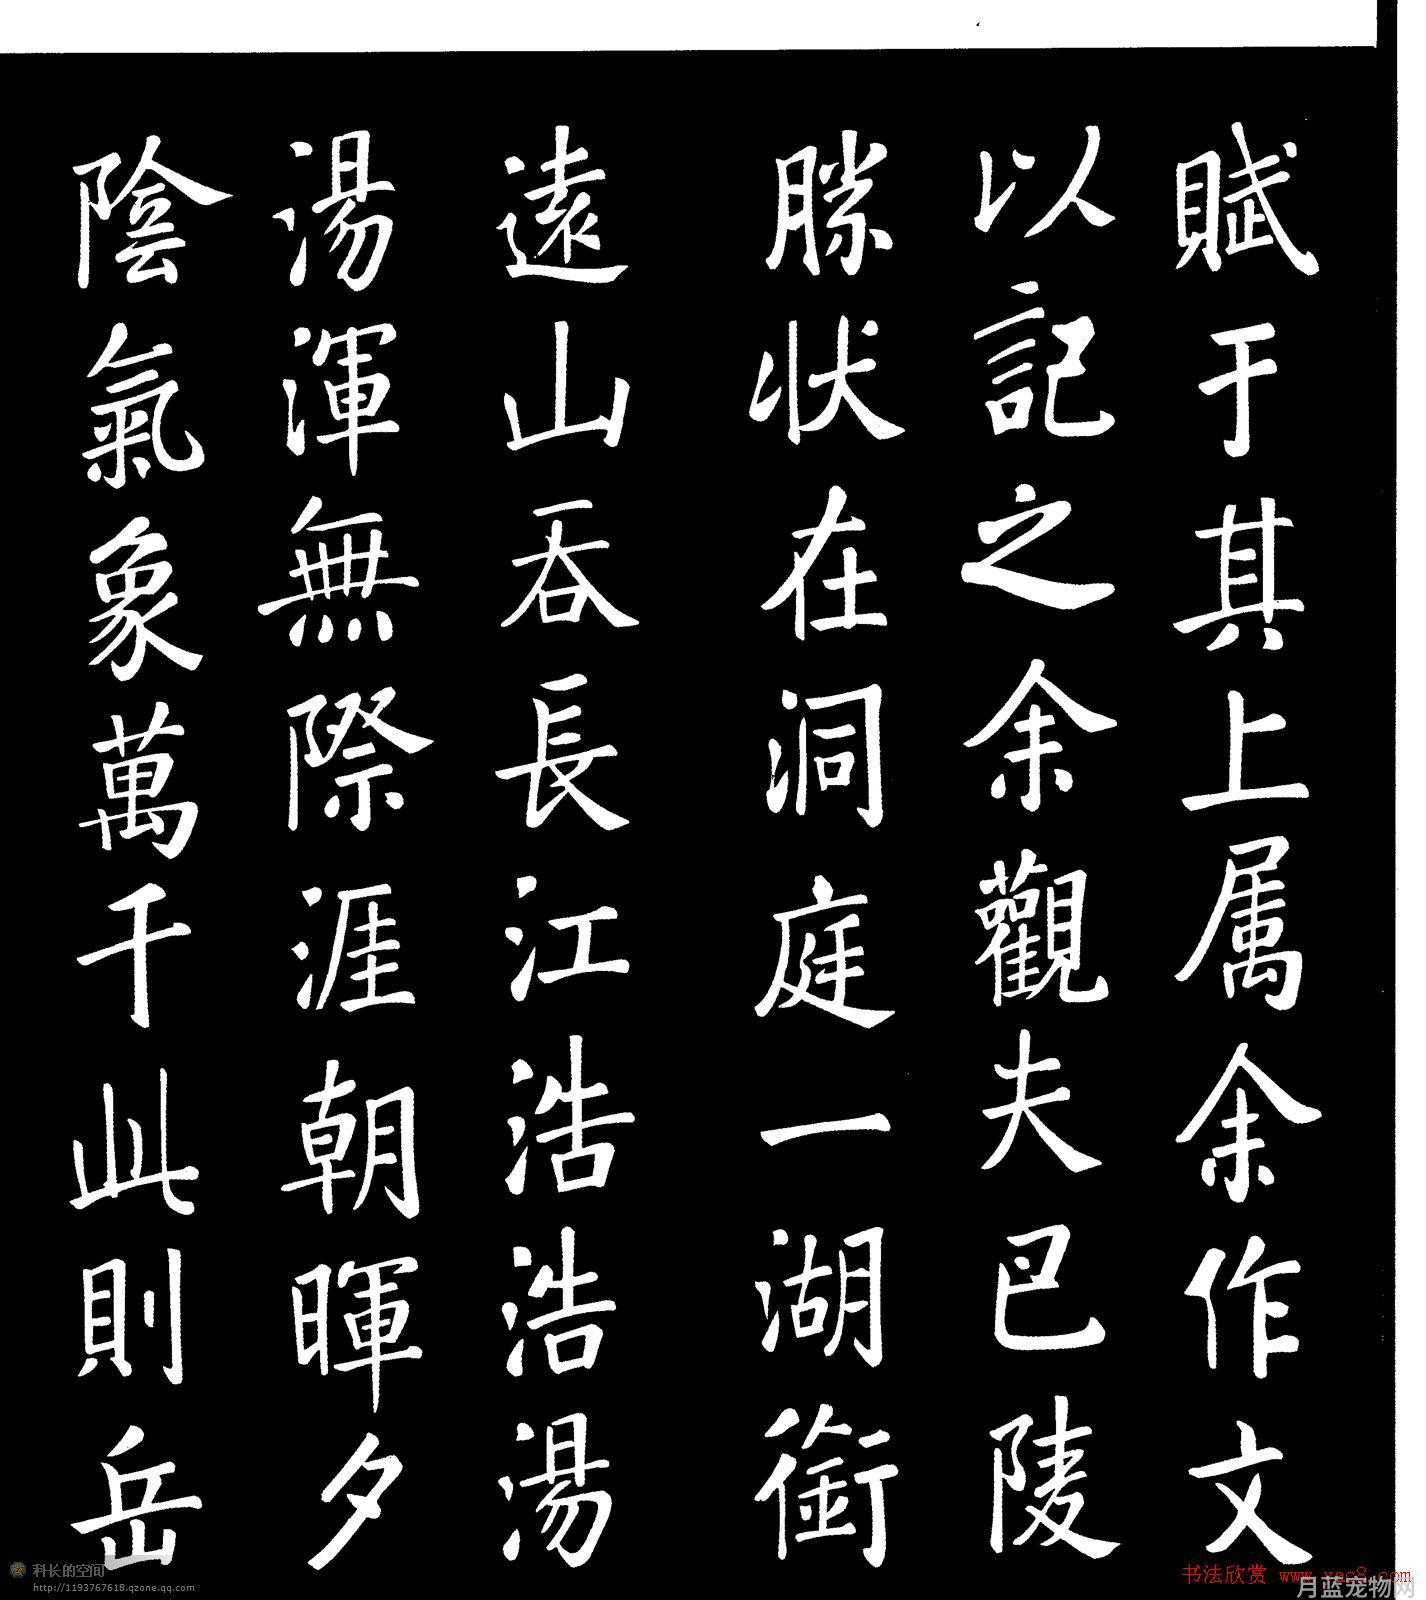 賦于其上属余作文
以記之余觀夫巴陵
勝状在洞庭一湖銜
遠山吞長江浩浩湯
湯渾無際涯朝暉夕
陰氣象萬千此則岳
科长的空间
http://1193767618.qzone.qq.com
书法欣赏 www.yac8.com
月蓝宠物网